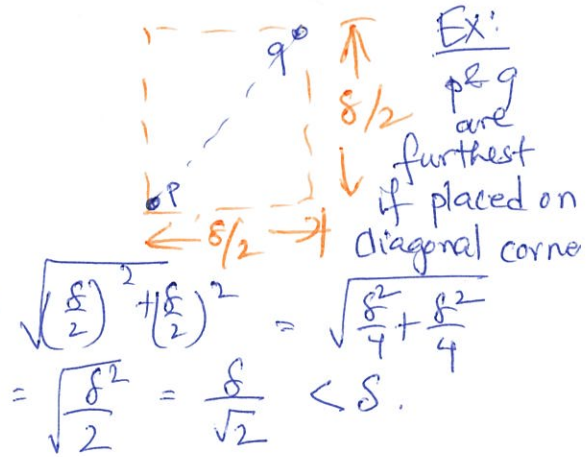 Ex:
p & q
are
furthest
if placed on
diagonal corne
q
p
δ/2
δ/2
√((δ/2)² + (δ/2)²) = √(δ²/4 + δ²/4)
= √(δ²/2) = δ/√2 < δ.